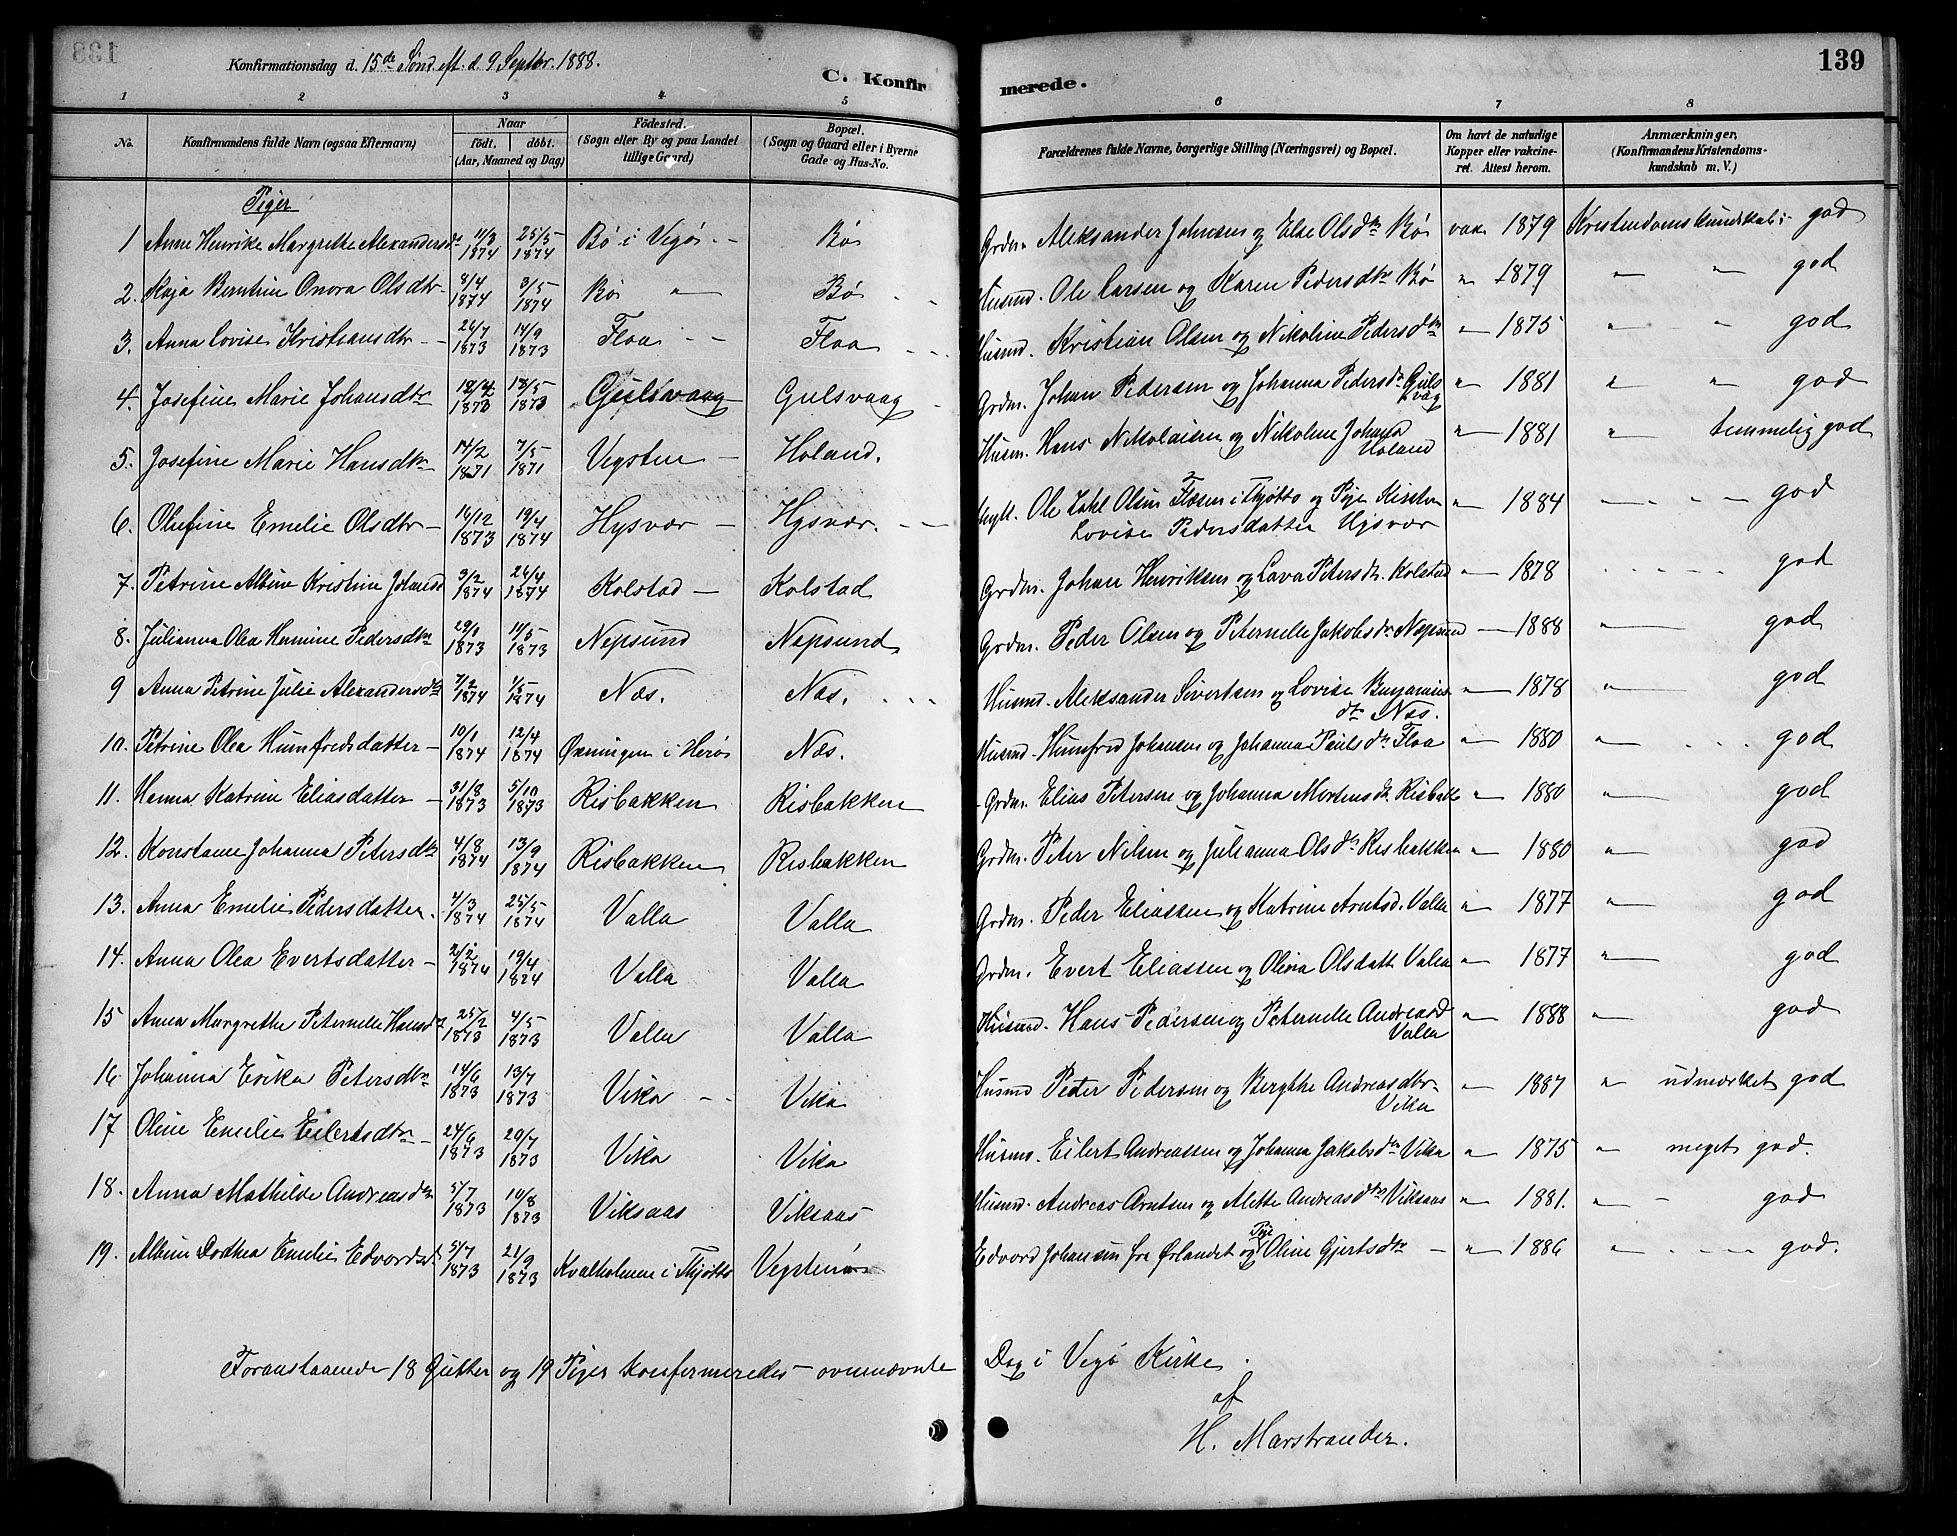 Konfirmationsdag d. 15de Sønd. eft. d. 9 Septbr. 1888.
C. Konfir
merede.
139
1 2 3 4 5 6 7 8
No.
Konfirmandens fulde Navn (ogsaa Efternavn)
Naar
født. døbt.
(Aar, Maaned og Dag)
Fødested.
(Sogn eller By og paa Landet
tillige Gaard)
Bopæl.
(Sogn og Gaard eller i Byerne
Gade og Hus-No.
Forældrenes fulde Navne, borgerlige Stilling (Næringsvei) og Bopæl.
Om havt de naturlige
Kopper eller vakcine-
ret. Attest herom.
Anmærkninger.
(Konfirmandens Kristendoms-
kundskab m. V.)
Piger
1 Anne Henrike Margrethe Alexandersdtr 11/3 1874 25/5 1874 Bø i Vegø Bø Grdm. Aleksander Johnsen og Else Olsdtr Bø vak 1879 Kristendomskundskab: god
2. Kaja Berntine Onora Olsdtr 8/4 1874 3/5 1874 Bø " Bø Husmd. Ole Larsen og Karen Pedersdtr Bø " 1879 " " god
3. Anna Lovise Kristiansdtr 26/7 1873 14/9 1873 Floa Floa Husmd. Kristian Olsen og Nikoline Pedersdtr " 1875 " " god
4. Josefine Marie Johansdtr 1873 18/5 1873 Gulsvaag Gulsvaag Grdm. Johan Pedersen og Johanna Pedersdtr Gulsvaag " 1881 " " god
5. Josefine Marie Hansdtr 14/2 1871 7/5 1871 Vegsten Holand. Husm. Hans Nikolaisen og Nikoline Johansd Holand " 1881 " temmelig god
6. Olufine Emelie Olsdtr 16/12 1873 19/4 1874 Hysvær Hysvær. Ole Olsen Flæsen i Thjøtto og Pige Kirsten
Lovise Pedersdatter Hysvær " 1884 " god
7. Petrine Albine Kristine Johansd 3/2 1874 26/4 1874 Kolstad Kolstad Grdm. Johan Henriksen og Lava Petersdtr. Kolstad " 1878 god
8. Julianna Olea Hermine Pedersdtr 29/1 1873 11/5 1873 Nepsund Nepsund Grdm. Peder Olsen og Peternelle Jakobsdtr Nepsund 1888 " god
9 Anna Petrine Julie Alexandersdtr 7/2 1874 1/5 1874 Næs. Næs. Husmd. Aleksander Sivertsen og Lovise Benjamins
dtr Næs. " 1878 " god
10. Petrine Olea Humfredsdatter 10/1 1874 12/4 1874 Øxningen i Herø Næs. Husmd. Humfred Johansen og Johanna Paulsdtr Floa " 1880 " god
11. Hanna Katrine Eliasdatter 31/8 1873 5/10 1873 Risbakken Risbakken Grdm. Elias Petersen og Johanna Mortensdtr. Risbakk " 1880 " god
12. Konstanse Johanna Petersdtr 4/8 1874 13/9 1874 Risbakken Risbakken Grdm. Peter Nilsen og Julianna Olsdtr Risbakken " 1880 " god
13. Anna Emelie Pedersdatter. 4/3 1874 25/5 1874 Valla Valla Grdm. Peder Eliassen og Katrine Arntsd. Valla " 1877 " god
14. Anna Olea Evertsdatter 2/2 1874 19/4 1874 Valla Valla Grdm. Evert Eliassen og Olina Olsdatt Valla " 1877 " god
15 Anna Margrethe Peternelle Hansdtr 25/2 1873 4/5 1873 Valla Valla Husmd. Hans Pedersen og Peternelle Andreasd
Valla " 1888 " god
16. Johanna Erika Petersdtr 14/6 1873 13/7 1873 Vika Vika Husmd Peter Pedersen og Bergthe Andreasdtr.
Vika " 1887 " udmærket god
17 Oline Emelie Eilertsdtr 24/6 1873 20/7 1873 Vika Vika Husmd. Eilert Andreassen og Johanna Jakobsdtr Vika " 1875 " meget god.
18. Anna Mathilde Andreasdtr 5/7 1873 10/8 1873 Viksaas Viksaas Husmd. Andreas Arntsen og Alette Andreasdtr Viksaas " 1881. " god
19. Albine Dorthea Emelie Edvardsd. 5/7 1873 21/9 1873 Kvalholmen i Thjøtto Vegstenø Edvard Johansen fra Ørlandet og Pige Oline Gjertsdtr " 1886 " god.
Foranstaaende 18 Gutter og 19 Piger konfirmeredes ovennævnte Dag i Vegø Kirke.
af
H. Marstrander.